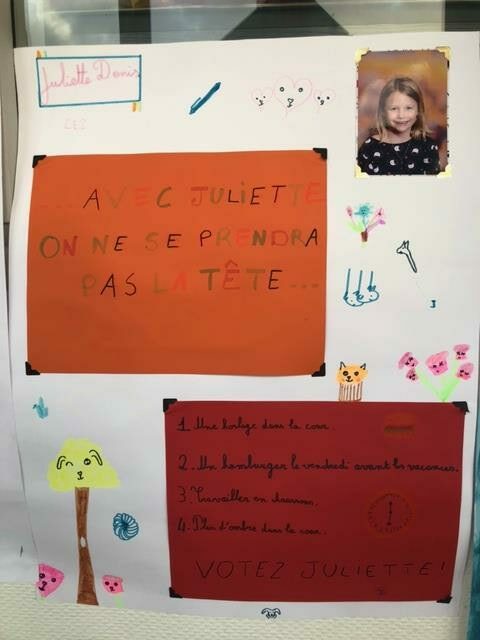 Juliette Denis
CE2
... AVEC JULIETTE
ON NE SE PRENDRA
PAS LA TÊTE...
1. Une horloge dans la cour.
2. Un hamburger le vendredi avant les vacances.
3. Travailler en chaussons.
4. Plus d'ombre dans la cour.
VOTEZ JULIETTE!